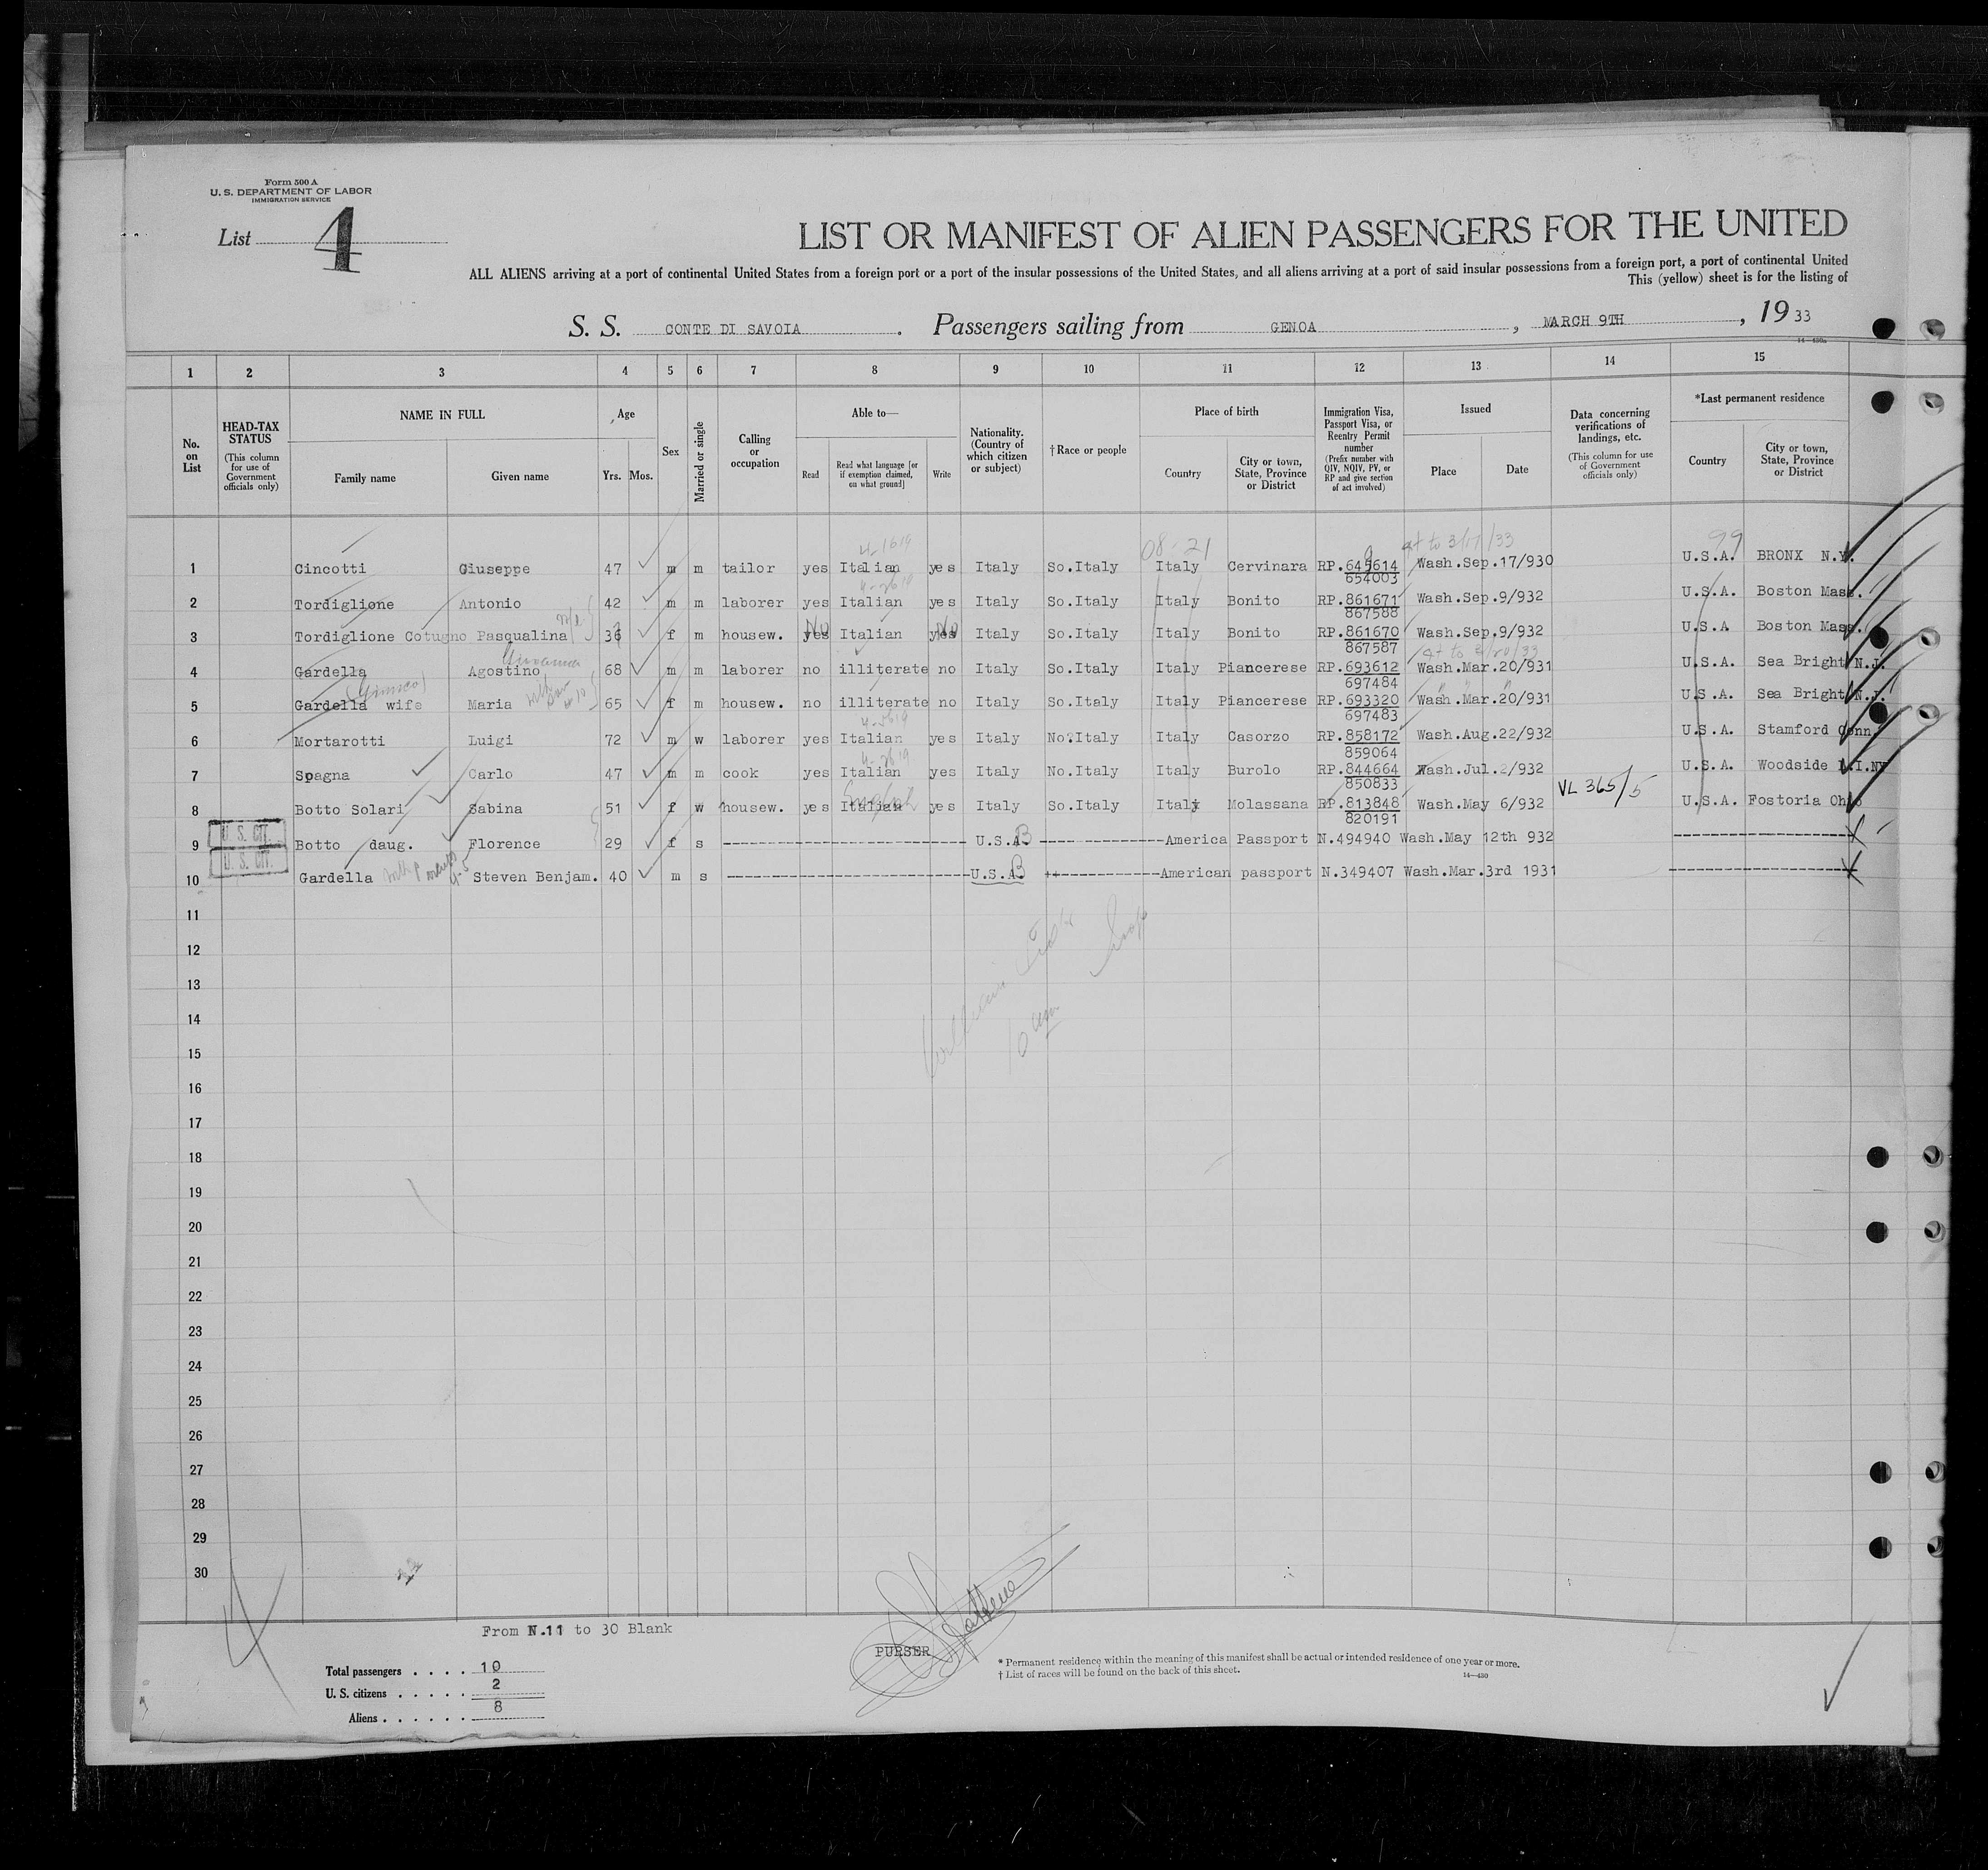 Form 500 A
U. S. DEPARTMENT OF LABOR
IMMIGRATION SERVICE
List 4
LIST OR MANIFEST OF ALIEN PASSENGERS FOR THE UNITED
ALL ALIENS arriving at a port of continental United States from a foreign port or a port of the insular possessions of the United States, and all aliens arriving at a port of said insular possessions from a foreign port, a port of continental United
This (yellow) sheet is for the listing of
S. S. CONTE DI SAVOIA . Passengers sailing from GENOA , MARCH 9TH , 19 33
14—430a
1 2 3 4 5 6 7 8 9 10 11 12 13 14 15
No. on List
HEAD-TAX STATUS (This column for use of Government officials only)
NAME IN FULL
Family name Given name
Age
Yrs. Mos.
Sex
Married or single
Calling or occupation
Able to—
Read
Read what language [or if exemption claimed, on what ground]
Write
Nationality. (Country of which citizen or subject)
†Race or people
Place of birth
Country
City or town, State, Province or District
Immigration Visa, Passport Visa, or Reentry Permit number (Prefix number with QIV, NQIV, PV, or RP and give section of act involved)
Issued
Place Date
Data concerning verifications of landings, etc. (This column for use of Government officials only)
*Last permanent residence
Country
City or town, State, Province or District
08-21 3/17/33 99
1 Cincotti Giuseppe 47 m m tailor yes Italian yes Italy So.Italy Italy Cervinara RP.645614 Wash.Sep.17/930 U.S.A. BRONX N.Y.
654003
2 Tordiglione Antonio 42 m m laborer yes Italian yes Italy So.Italy Italy Bonito RP.861671 Wash.Sep.9/932 U.S.A. Boston Mass.
867588
3 Tordiglione Cotugno Pasqualina 36 f m housew. yes No Italian yes No Italy So.Italy Italy Bonito RP.861670 Wash.Sep.9/932 U.S.A Boston Mass.
867587
4 Gardella Agostino 68 m m laborer no illiterate no Italy So.Italy Italy Piancerese RP.693612 Wash.Mar.20/931 U.S.A. Sea Bright N.J.
697484
5 Gardella wife Maria 65 f m housew. no illiterate no Italy So.Italy Italy Piancerese RP.693320 Wash.Mar.20/931 U.S.A. Sea Bright N.J.
697483
6 Mortarotti Luigi 72 m w laborer yes Italian yes Italy No.Italy Italy Casorzo RP.858172 Wash.Aug.22/932 U.S.A. Stamford Conn.
859064
7 Spagna Carlo 47 m m cook yes Italian yes Italy No.Italy Italy Burolo RP.844664 Wash.Jul.2/932 U.S.A. Woodside L.I.NY
850833
8 Botto Solari Sabina 51 f w housew. yes Italian English yes Italy So.Italy Italy Molassana RP.813848 Wash.May 6/932 VL 365/5 U.S.A. Fostoria Ohio
820191
U. S. CIT.
9 Botto daug. Florence 29 f s U.S.A America Passport N.494940 Wash.May 12th 932
U. S. CIT.
10 Gardella Steven Benjam. 40 m s U.S.A American passport N.349407 Wash.Mar.3rd 1931
11
12
13
14
15
16
17
18
19
20
21
22
23
24
25
26
27
28
29
30
From N.11 to 30 Blank
PURSER
Total passengers . . . . 10
U. S. citizens . . . . . 2
Aliens . . . . . . 8
* Permanent residence within the meaning of this manifest shall be actual or intended residence of one year or more.
† List of races will be found on the back of this sheet.
14—430